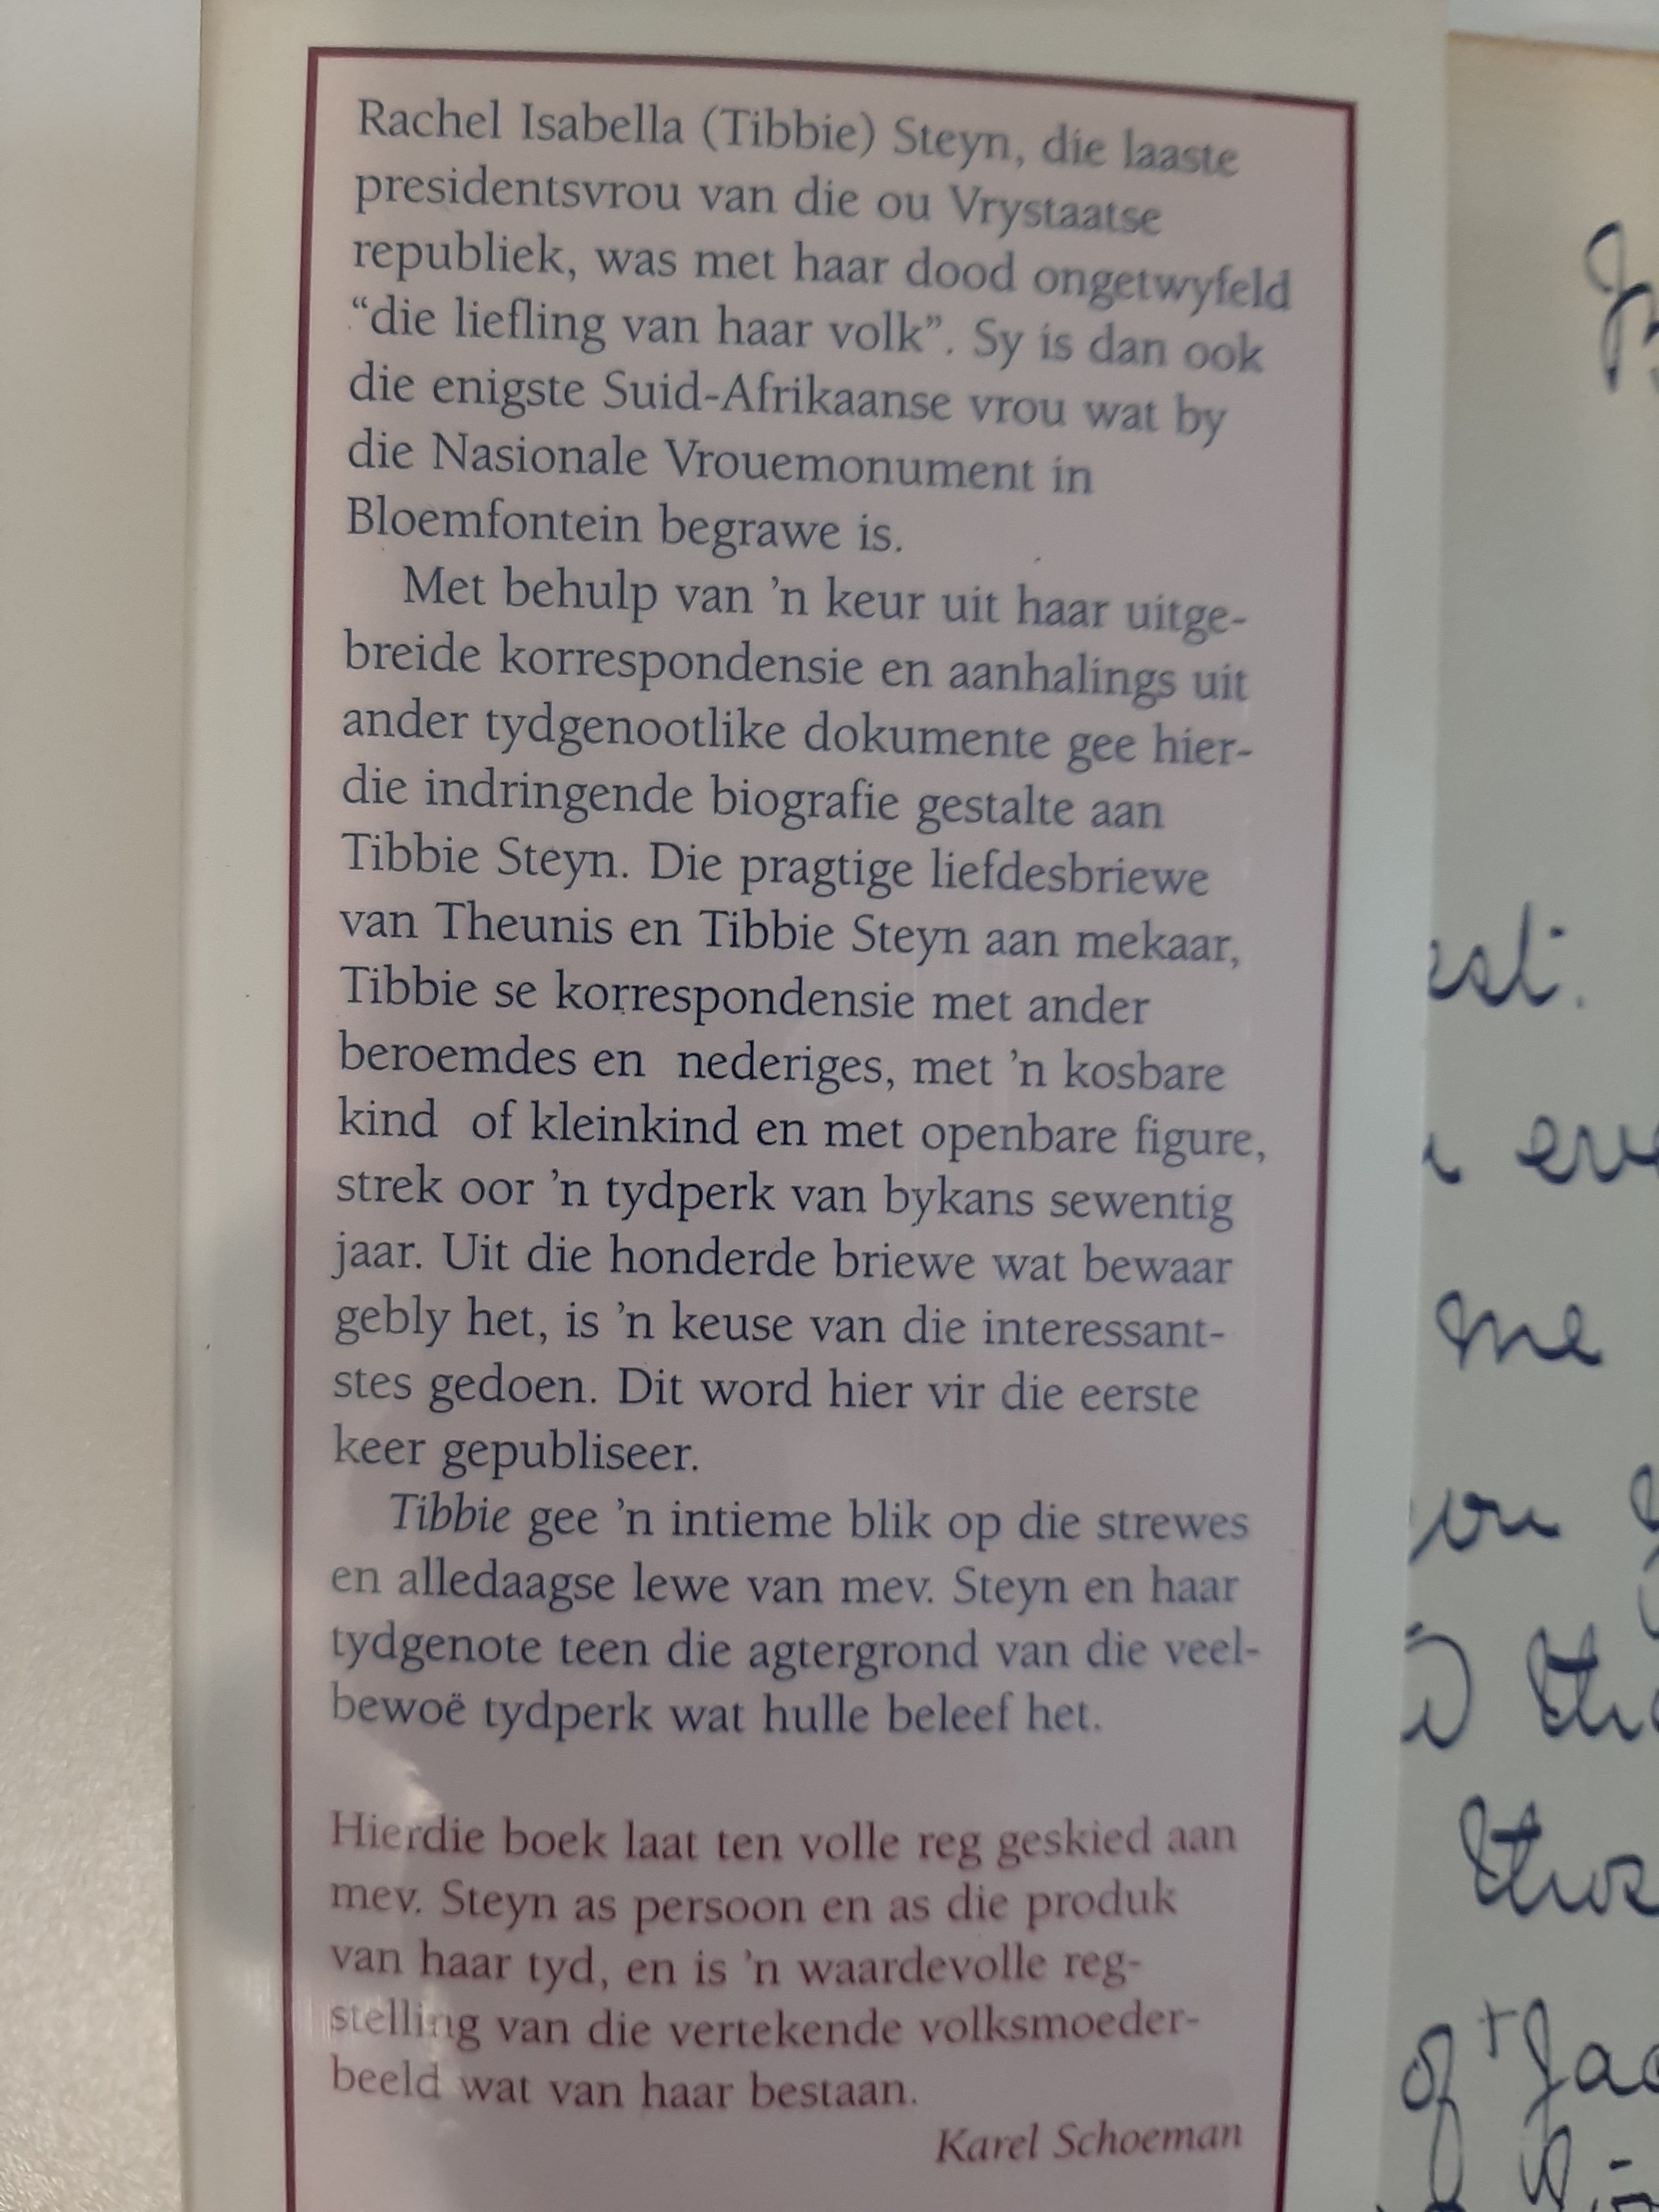 Rachel Isabella (Tibbie) Steyn, die laaste
presidentsvrou van die ou Vrystaatse
republiek, was met haar dood ongetwyfeld
“die liefling van haar volk”. Sy is dan ook
die enigste Suid-Afrikaanse vrou wat by
die Nasionale Vrouemonument in
Bloemfontein begrawe is.
Met behulp van ’n keur uit haar uitge-
breide korrespondensie en aanhalings uit
ander tydgenootlike dokumente gee hier-
die indringende biografie gestalte aan
Tibbie Steyn. Die pragtige liefdesbriewe
van Theunis en Tibbie Steyn aan mekaar,
Tibbie se korrespondensie met ander
beroemdes en nederiges, met ’n kosbare
kind of kleinkind en met openbare figure,
strek oor ’n tydperk van bykans sewentig
jaar. Uit die honderde briewe wat bewaar
gebly het, is ’n keuse van die interessant-
stes gedoen. Dit word hier vir die eerste
keer gepubliseer.
Tibbie gee ’n intieme blik op die strewes
en alledaagse lewe van mev. Steyn en haar
tydgenote teen die agtergrond van die veel-
bewoë tydperk wat hulle beleef het.
Hierdie boek laat ten volle reg geskied aan
mev. Steyn as persoon en as die produk
van haar tyd, en is ’n waardevolle reg-
stelling van die vertekende volksmoeder-
beeld wat van haar bestaan.
Karel Schoeman
me